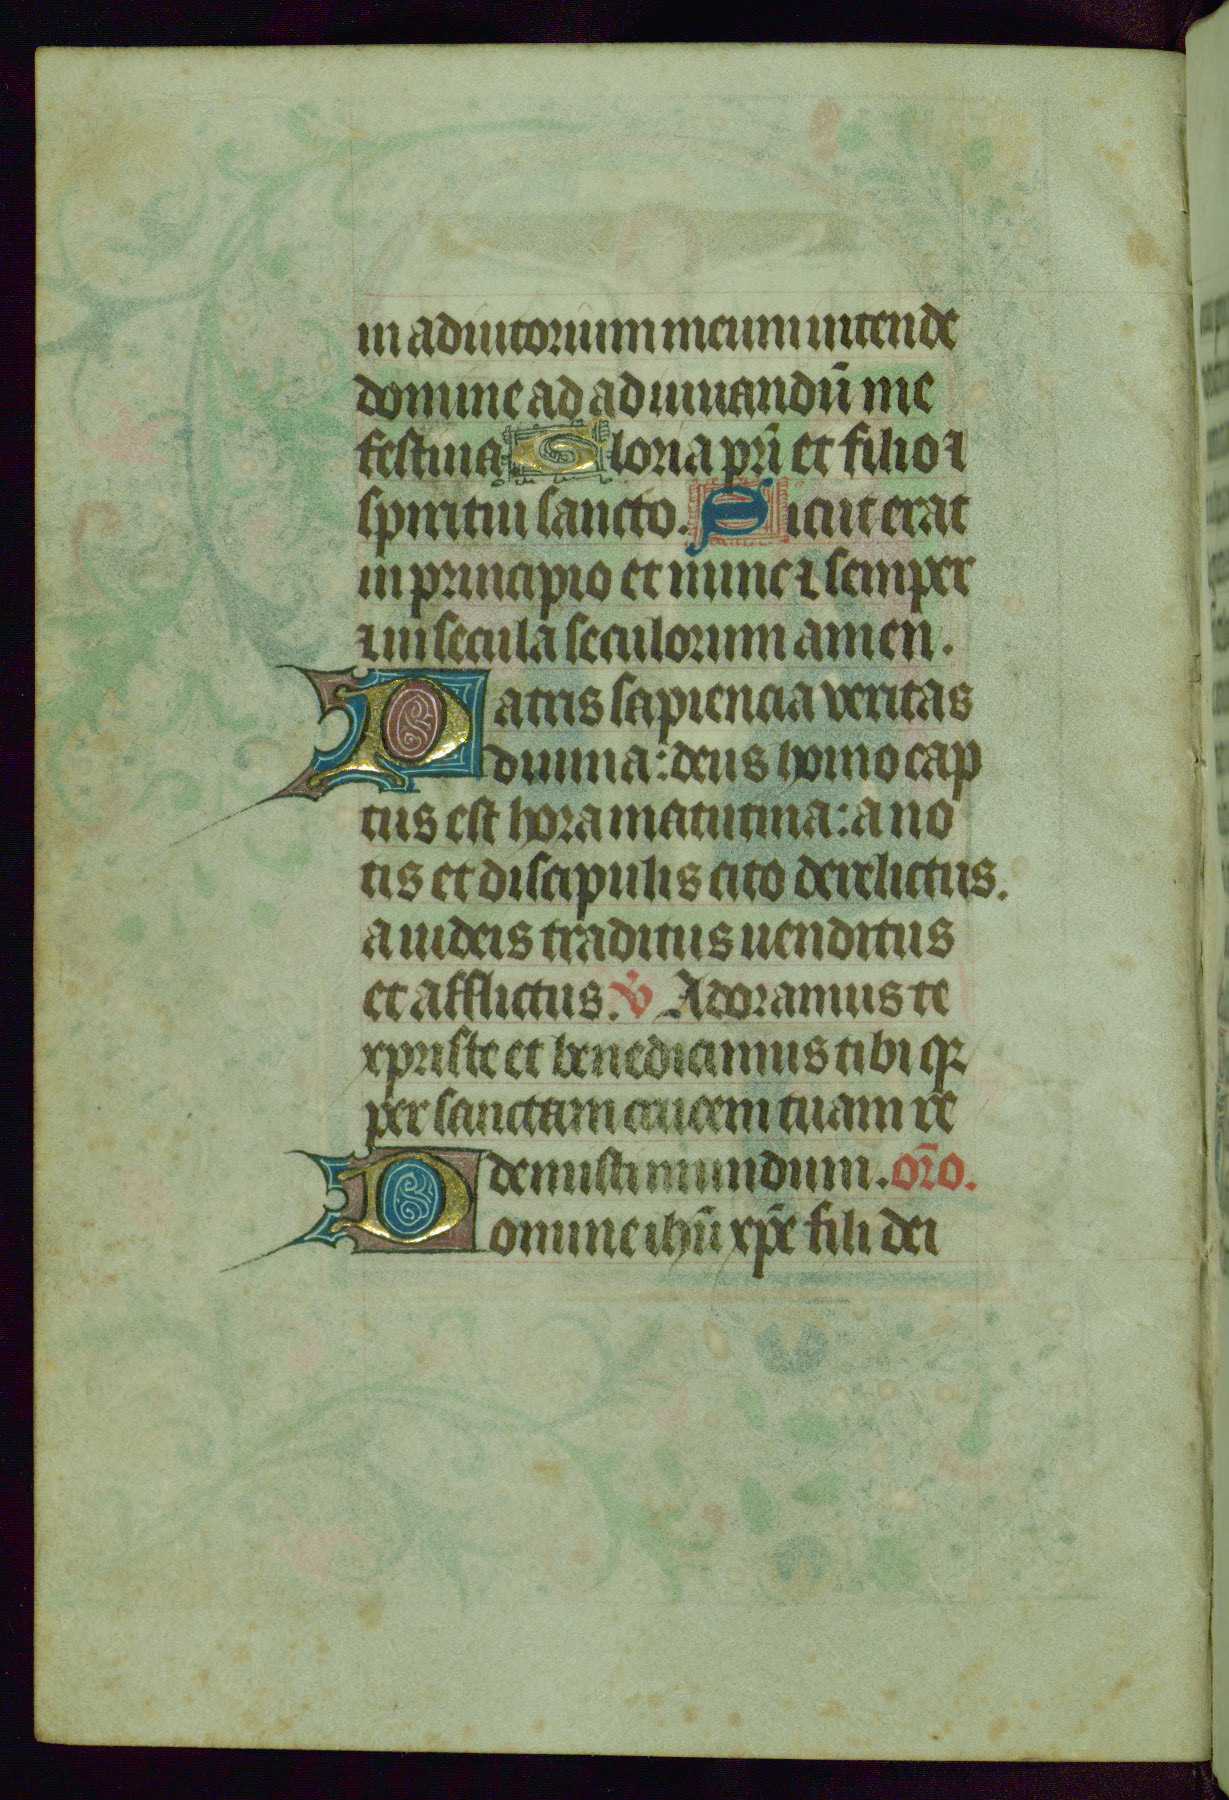 in adiutorium meum intende
domine ad adiuuandū me
festina Gloria pri̅ et filio ⁊
spiritui sancto. Sicut erat
in principio et nunc ⁊ semper
⁊ in secula seculorum amen.
Patris sapiencia veritas
diuina: deus homo cap
tus est hora matutina: a no
tis et discipulis cito derelictus.
a iudeis traditus uenditus
et afflictus. V̇ Adoramus te
xpriste et benedicimus tibi qr
per sanctam crucem tuam re
demisti mundum. or̅o.
Domine ihū xp̅e fili dei